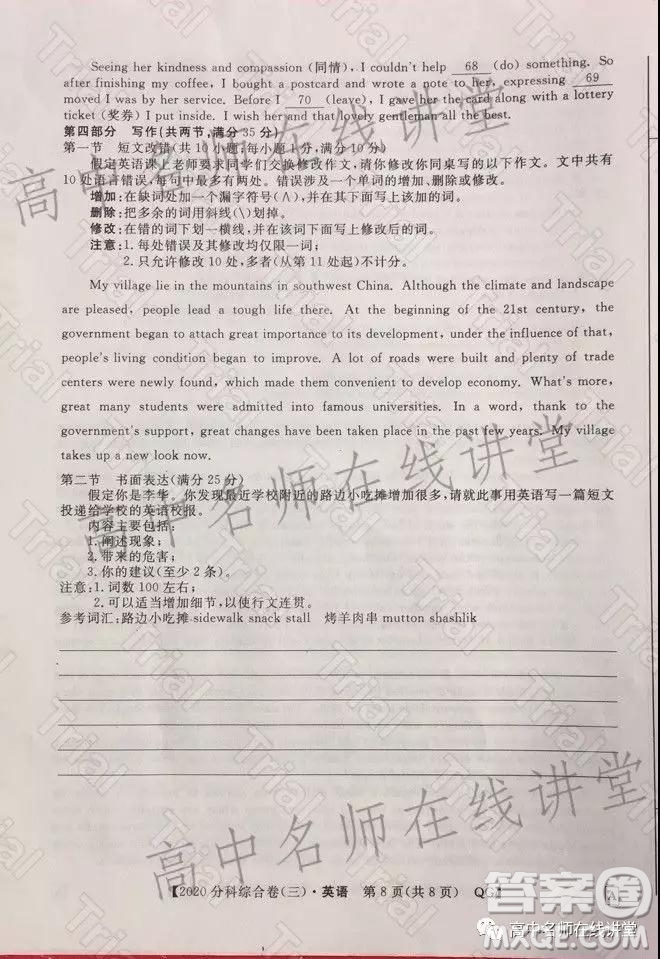 Seeing her kindness and compassion (同情), I couldn't help 68 (do) something. So
after finishing my coffee, I bought a postcard and wrote a note to her, expressing 69
moved I was by her service. Before I 70 (leave), I gave her the card along with a lottery
ticket (奖券) I put inside. I wish her and that lovely gentleman all the best.
第四部分 写作(共两节,满分 35 分)
第一节 短文改错(共 10 小题;每小题 1 分,满分 10 分)
假定英语课上老师要求同学们交换修改作文,请你修改你同桌写的以下作文。文中共有
10 处语言错误,每句中最多有两处。错误涉及一个单词的增加、删除或修改。
增加:在缺词处加一个漏字符号(∧),并在其下面写上该加的词。
删除:把多余的词用斜线(\)划掉。
修改:在错的词下划一横线,并在该词下面写上修改后的词。
注意:1. 每处错误及其修改均仅限一词;
2. 只允许修改 10 处,多者(从第 11 处起)不计分。
My village lie in the mountains in southwest China. Although the climate and landscape
are pleased, people lead a tough life there. At the beginning of the 21st century, the
government began to attach great importance to its development, under the influence of that,
people's living condition began to improve. A lot of roads were built and plenty of trade
centers were newly found, which made them convenient to develop economy. What's more,
great many students were admitted into famous universities. In a word, thank to the
government's support, great changes have been taken place in the past few years. My village
takes up a new look now.
第二节 书面表达(满分 25 分)
假定你是李华。你发现最近学校附近的路边小吃摊增加很多,请就此事用英语写一篇短文
投递给学校的英语校报。
内容主要包括:
1. 阐述现象;
2. 带来的危害;
3. 你的建议(至少 2 条)。
注意:1. 词数 100 左右;
2. 可以适当增加细节,以使行文连贯。
参考词汇:路边小吃摊 sidewalk snack stall 烤羊肉串 mutton shashlik
【2020 分科综合卷(三)·英语 第 8 页(共 8 页) QG】
高中名师在线讲堂
高中名师在线讲堂
高中名师在线讲堂
Trial
答案圈
MXQE.COM
高中名师在线讲堂